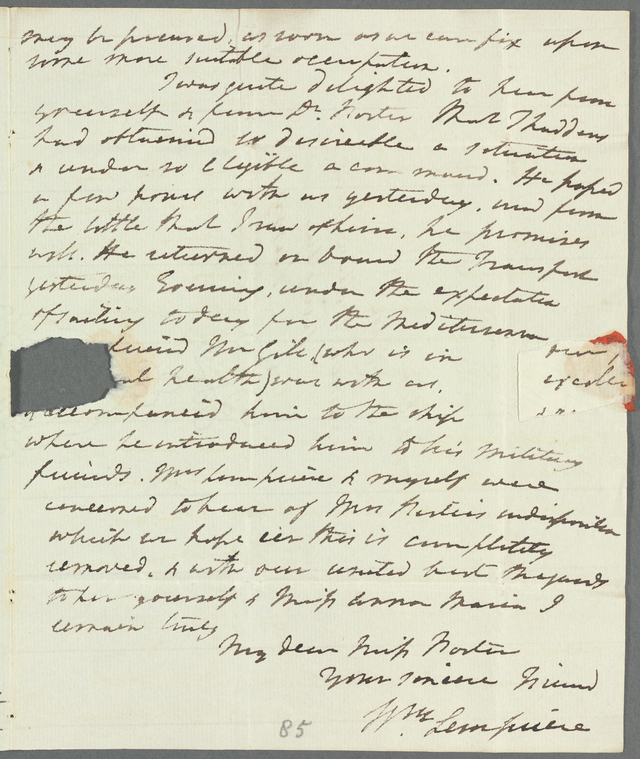 may be procured, as soon as we can fix upon
some more suitable occupation.
I was quite delighted to hear from
yourself & from Dr. Porter that Thaddeus
had obtained so desireable a situation
& under so Eligible a command. He passed
a few hours with us yesterday, and from
the little that I saw of him, he promises
well. He returned on board the Transport
yesterday Evening, under the expectation
of sailing today for the Mediterranean
our friend Mr Gill, (who is in
excellent health) was with us,
& accompanied him to the ship
where he introduced him to his Military
friends. Mrs Lempriere & myself were
concerned to hear of Mrs Porter's indisposition
which we hope ere this is completely
removed, & with our united best Regards
to her yourself & Miss Anna Maria I
remain truly
My dear Miss Porter
Your sincere Friend
Wm Lempriere
85